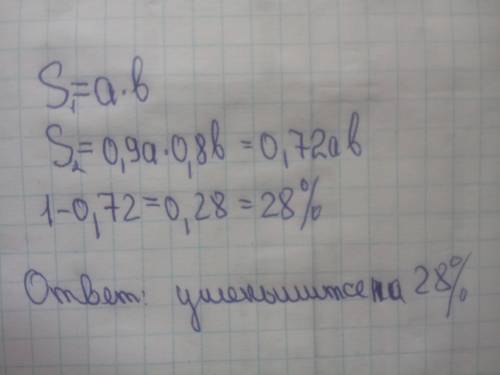 S₁=а·в
S₂=0,9а·0,8в=0,72ав
1-0,72=0,28=28%
Ответ: уменьшится на 28%